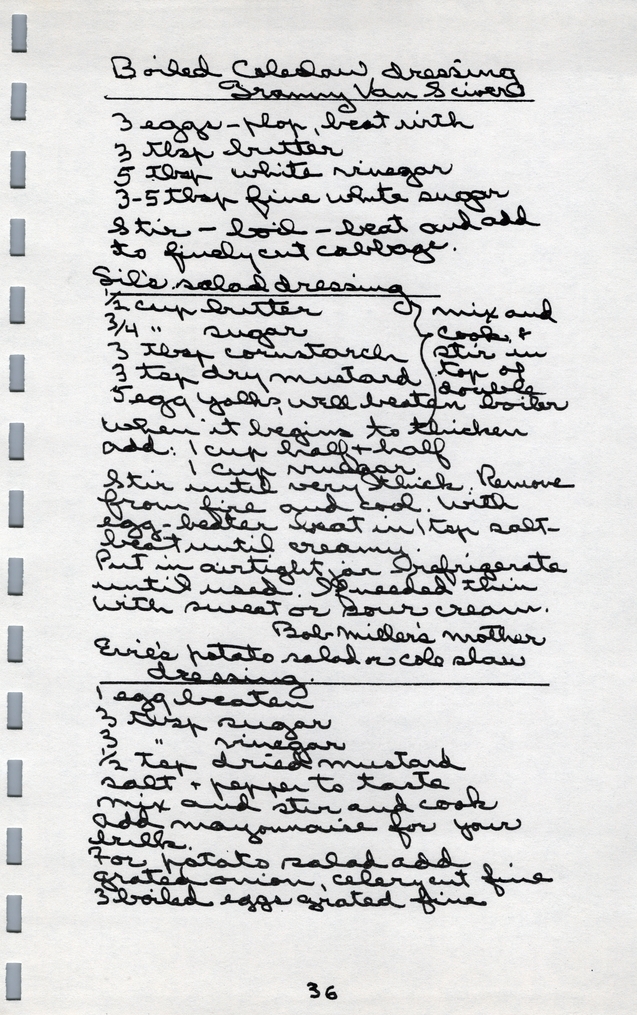 Boiled Coleslaw dressing
Granny Van Sciver
3 eggs - plop, beat with
3 tbsp butter
5 tbsp white vinegar
3-5 tbsp fine white sugar
Stir - boil - beat and add
to finely cut cabbage.
Sil's salad dressing
1/2 cup butter
3/4 " sugar
3 tbsp cornstarch
3 tsp dry mustard
5 egg yolks, well beaten
mix and
cook, +
stir in
top of
double
boiler
when it begins to thicken
add: 1 cup half + half
1 cup vinegar
Stir until very thick. Remove
from fire and cool. With
egg-beater beat in 1 tsp salt-
beat until creamy.
Put in airtight jar + refrigerate
until used. If needed thin
with sweet or sour cream.
Bob Miller's mother
Evie's potato salad or cole slaw
dressing.
1 egg beaten
3 tbsp sugar
3 " vinegar
1/2 tsp dried mustard
salt + pepper to taste
mix and stir and cook
add mayonnaise for your
frills.
For potato salad add
grated onion, celery cut fine
3 boiled eggs grated fine
36